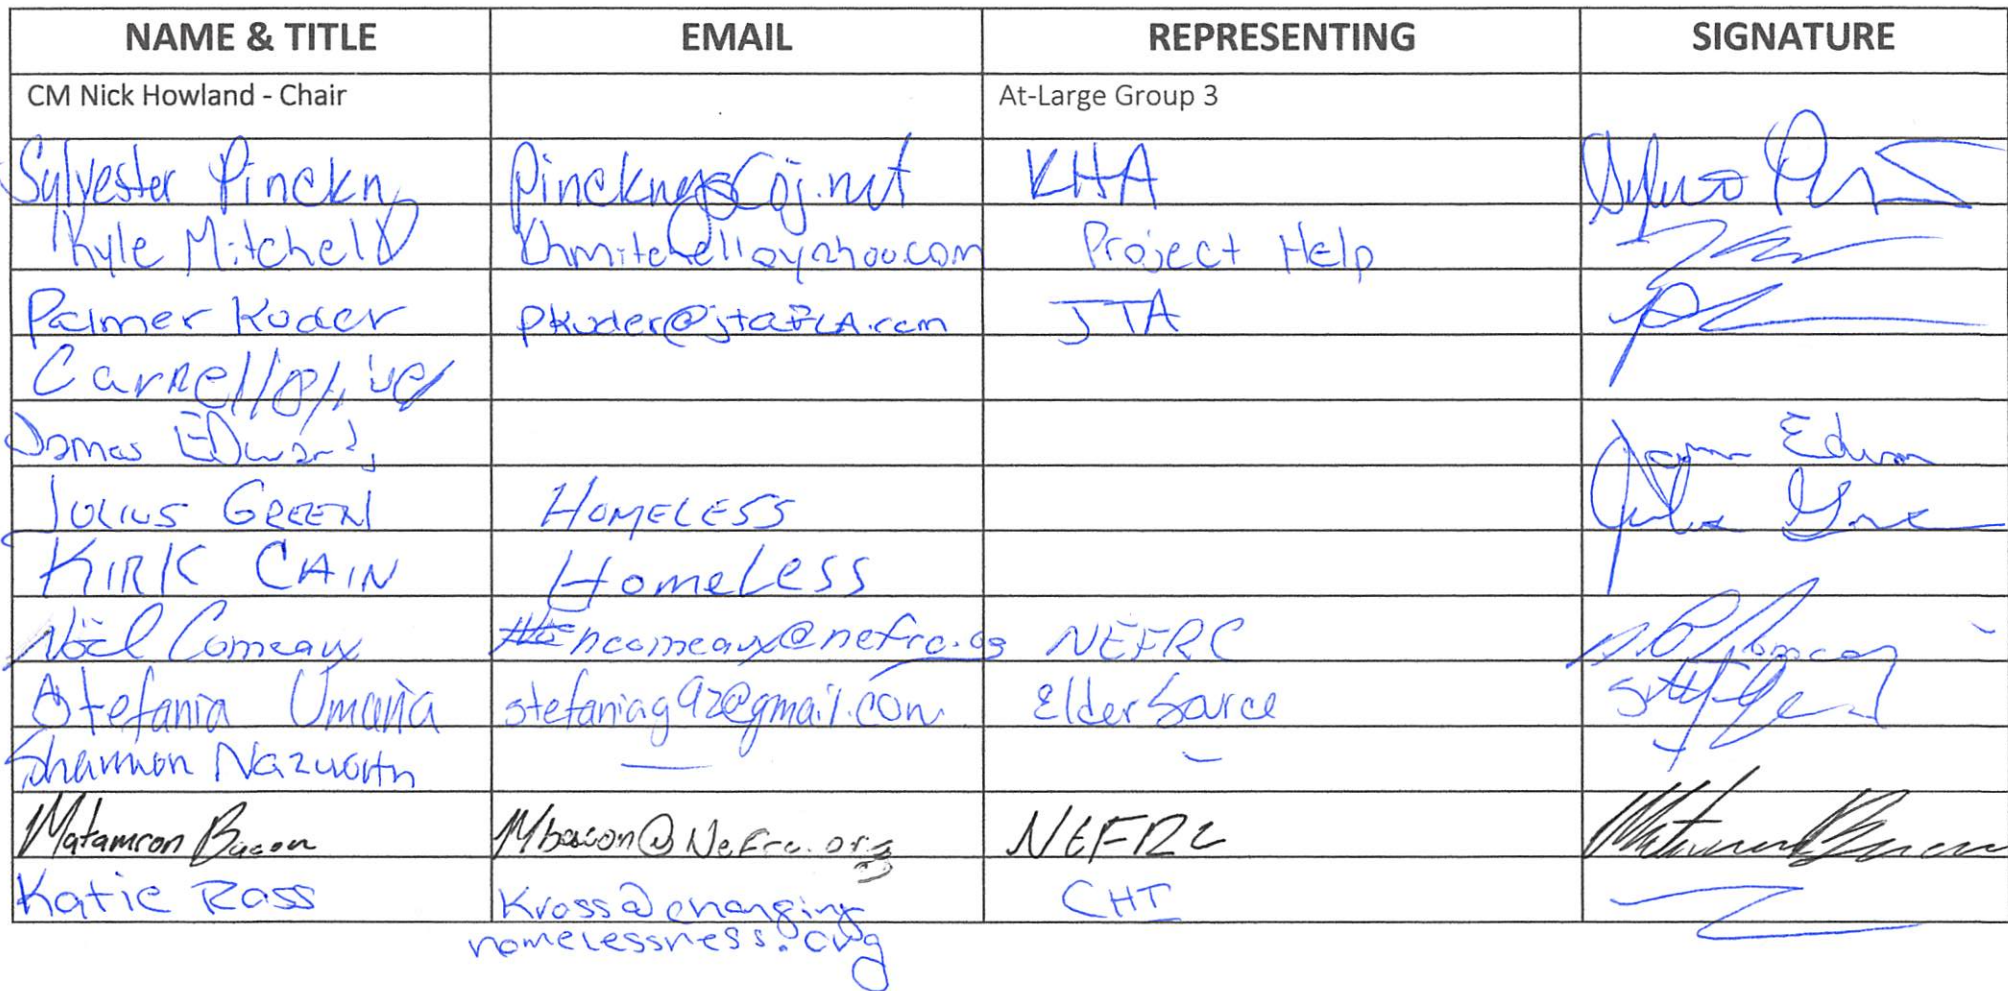 NAME & TITLE EMAIL REPRESENTING SIGNATURE
CM Nick Howland - Chair At-Large Group 3
Sylvester Pinckn KHA
Kyle Mitchell Khmitchell@yahoo.com Project Help
Palmer Kuder pkuder@jtaFLA.com JTA
Carnell Oliver
James Edwards James Edwar
JULIUS GREEN HOMELESS
KIRK CAIN HomeLess
Noël Comeaux ncomeaux@nefrc.og NEFRC
Stefania Umaña stefaniag92@gmail.com ElderSource
Shannon Nazworth — –
Matamron Bacon Mbacon@Nefrc.org NEFRC
Katie Ross Kross@changing CHT
homelessness.org